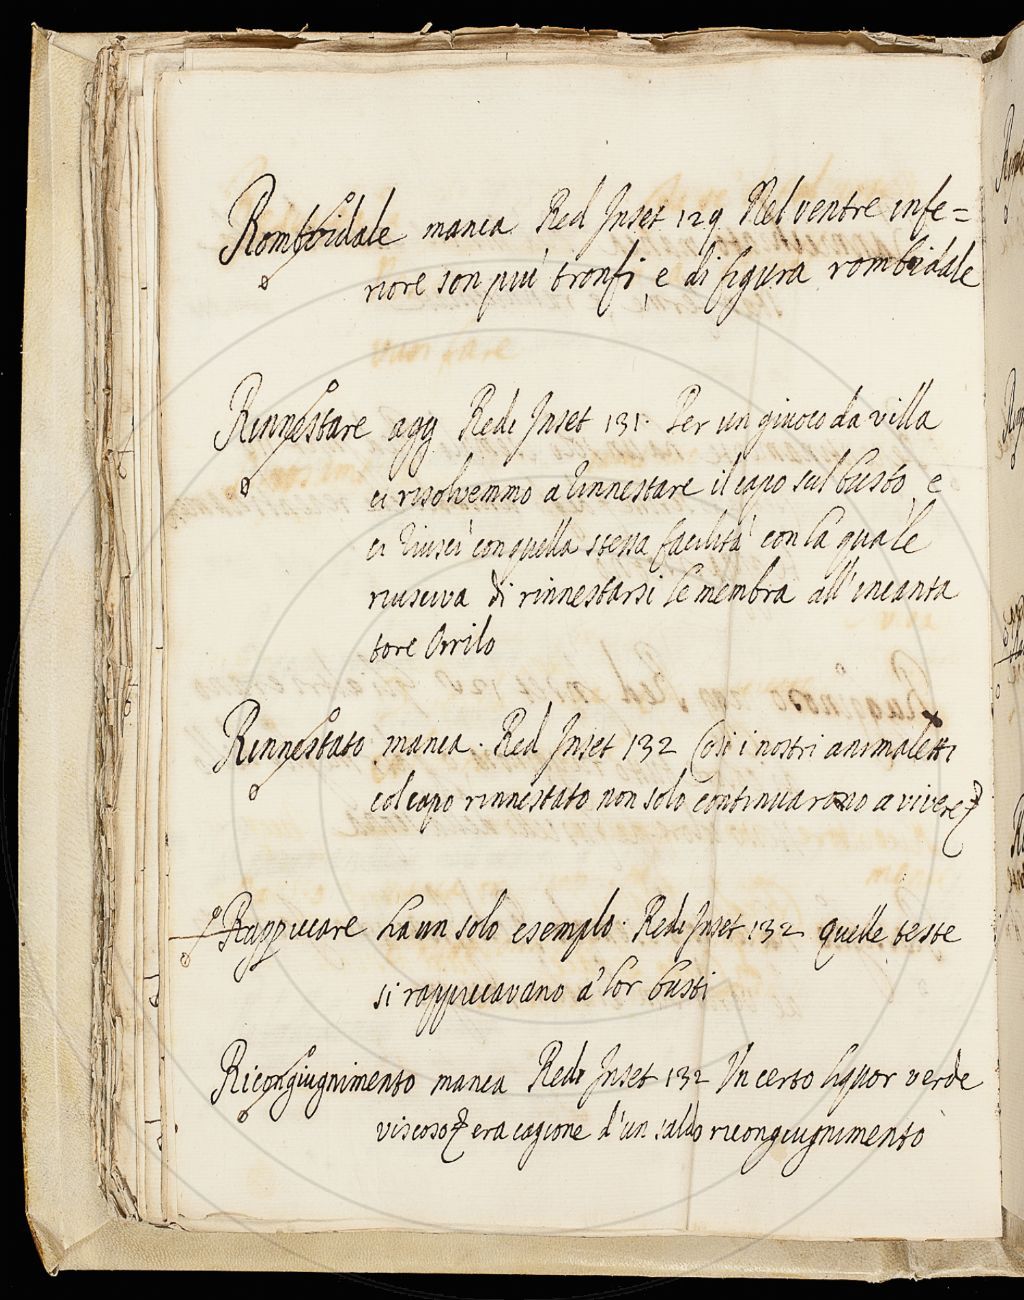 Romboidale manca Red Inset 129 Nel ventre infe=
riore son più tronfi, e di figura romboidale
Rinnestare agg Redi Inset 131. Per un giuoco da villa
ci risolvemmo a rinnestare il capo sul busto, e
ci riuscì con quella stessa facilità con la quale
riusciva di rinnestarsi le membra all'incanta
tore Orrilo
Rinnestato manca. Red Inset 132 Così i nostri animaletti
col capo rinnestato non solo continuarono a vivere
Rappiccare ha un solo esemplo. Redi Inset 132 quelle teste
si rappiccavano a' lor busti
Ricongiugnimento manca Redi Inset 132 Un certo liquor verde
viscoso era cagione d'un saldo ricongiugnimento